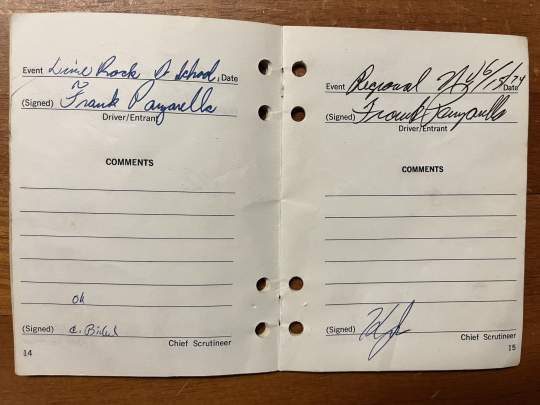 Event Lime Rock Dr School, Date
(Signed) Frank Panzarella
Driver/Entrant
COMMENTS
ok
(Signed)
Chief Scrutineer
14
Event Regional
Date
(Signed) Frank Panzarella
Driver/Entrant
COMMENTS
(Signed)
Chief Scrutineer
15